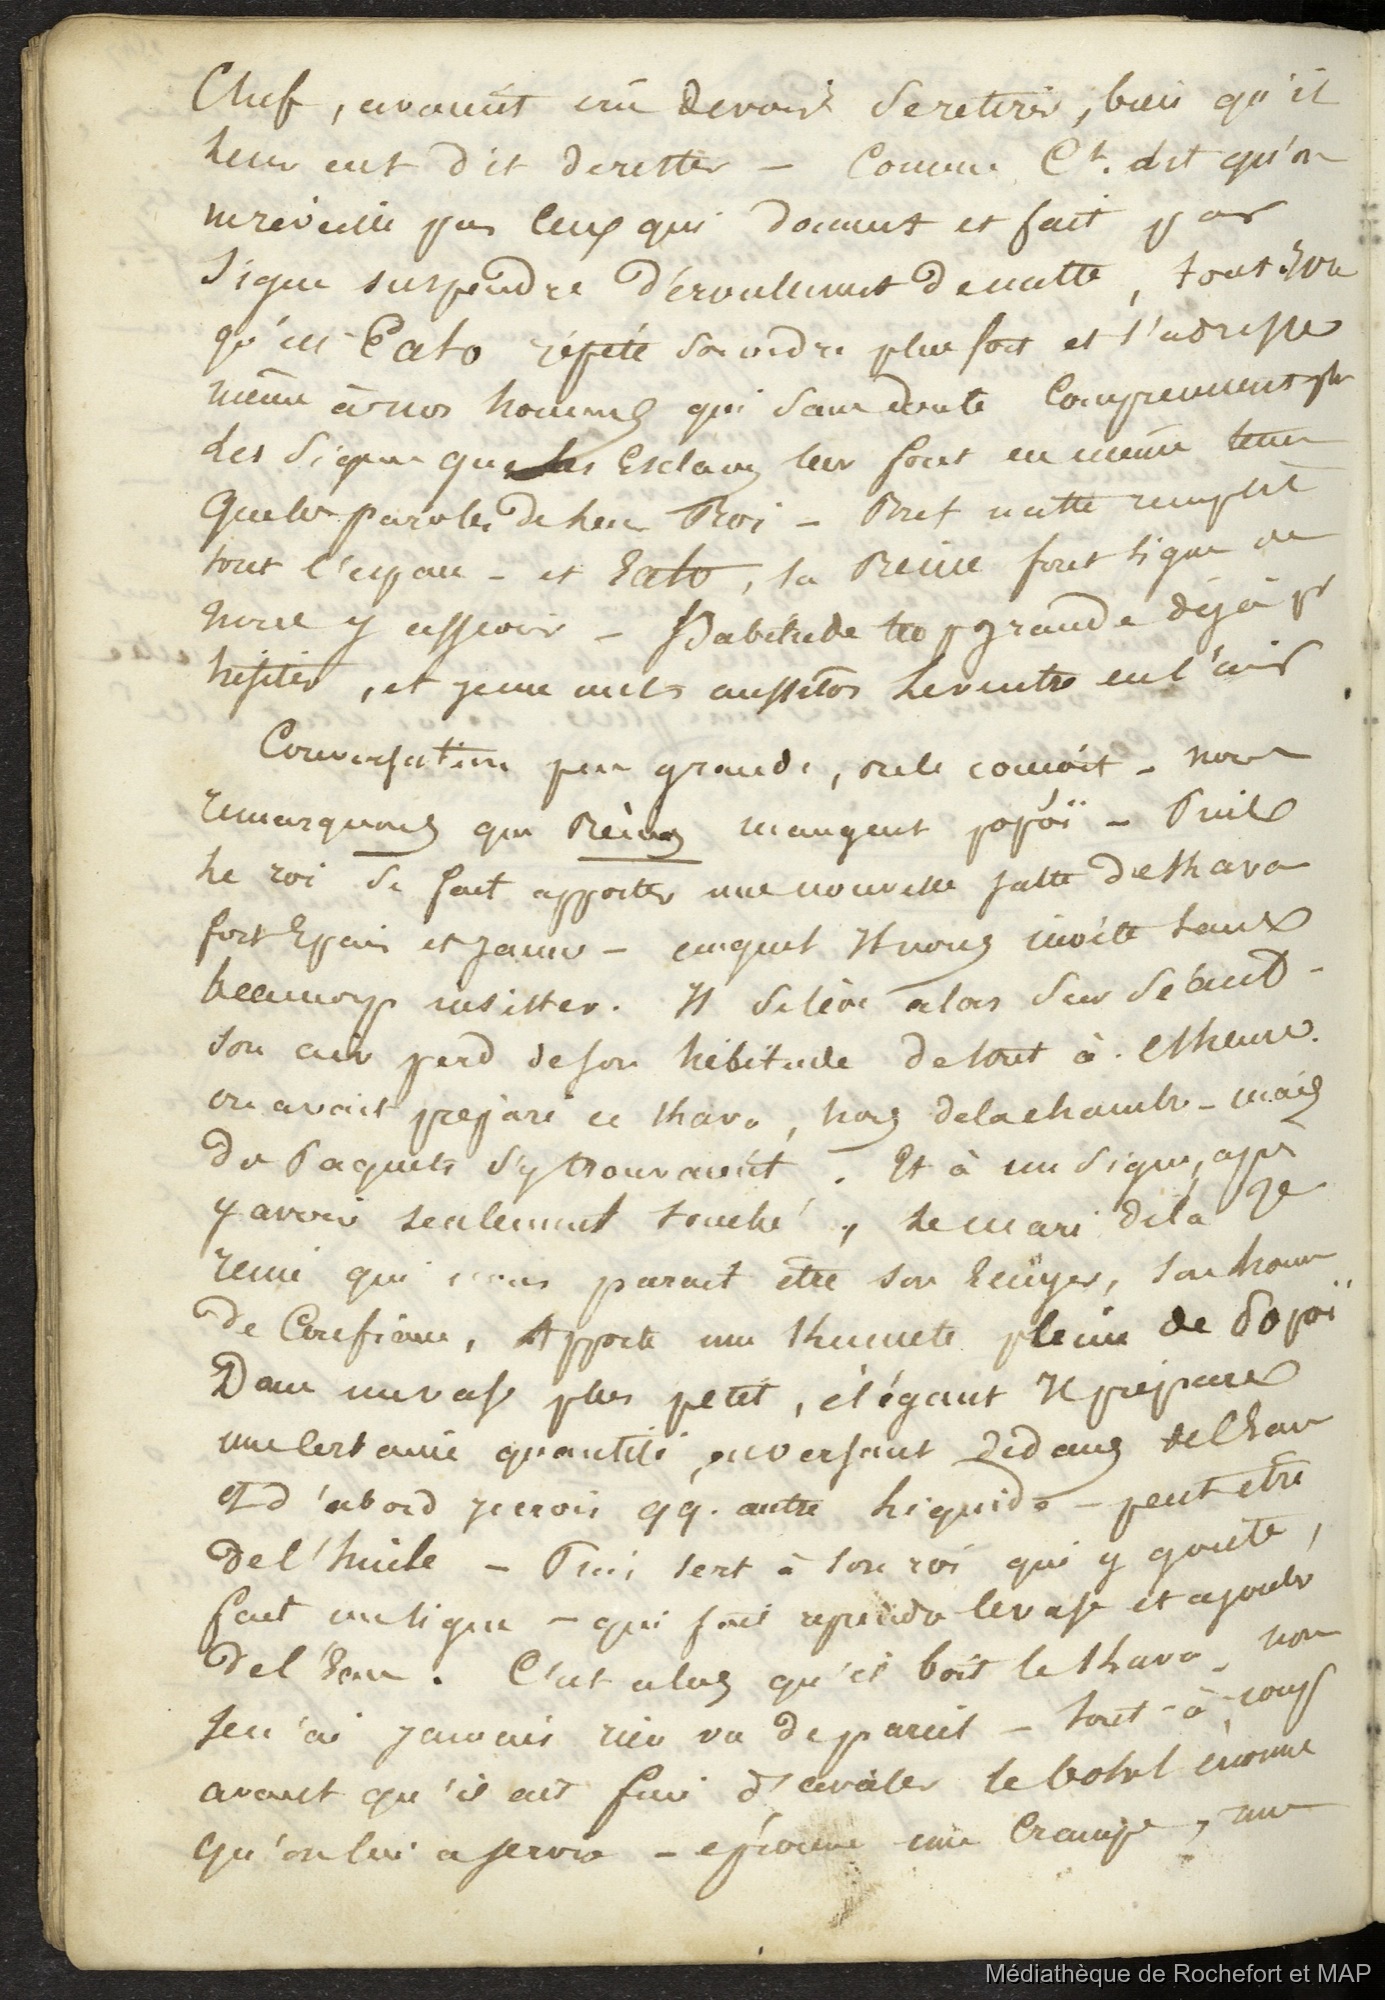 Chef, avaient crû devoir se retirer, bien qu'il
leur eut dit de rester - Comme Ct. dit qu'on
ne réveille pas ceux qui dorment et fait par
signe suspendre déroulement de natte, tout
qu'ici Eato répète son ordre plus fort et s'adresse
même à nos hommes qui sans doute comprennent plus
les signes que les Esclaves leur font en même tems
que les paroles de leur Roi - Bref natte remplit
tout l'espace - et Eato, la Reine font signe de
nous y asseoir - Habitude trop grande déjà pr
hésiter, et je me mets aussitôt le ventre en l'air
Conversation peu grande, on le conçoit - nous
remarquons que Reines mangent popoï - Puis
le roi se fait apporter une nouvelle jatte de Khava
fort Epais et jaune - auquel Il nous invite sans
beaucoup insister. Il se lève alors sur Séant -
son air perd de son hébétude de tout à l'heure.
on avait préparé ce Khava, hors de la chambre - mais
des Paquets s'y trouvaient. Et à un signe, après
y avoir seulement touché, le mari de la Je
reine qui nous parait être son Ecuyer, son homme
de Confiance, Apporte une pleine de Popoï
Dans un vase plus petit, élégant Il prépare
une certaine quantité, en versant dedans de l'Eau
Et d'abord je crois qq. autre liquide - peut être
de l'huile - Puis sert à son roi qui y goute,
fait un signe - qui fait reprendre le vase et ajouter
de l'Eau. C'est alors qu'il boit le Khava. non
Je n'ai jamais rien vu de pareil - tout-à-coup
avant qu'il ait fini d'avaler le bohl énorme
qu'on lui a servi - éprouve une Crampe, une
Médiathèque de Rochefort et MAP